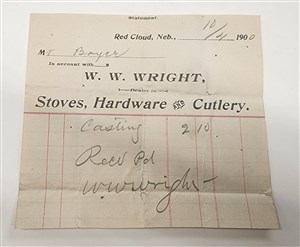 Statement.
Red Cloud, Neb., 10/4 1900
Mr Boyer
In account with
W. W. WRIGHT,
Dealer in
Stoves, Hardware and Cutlery.
Casting 2 10
Recd Pd
W W Wright